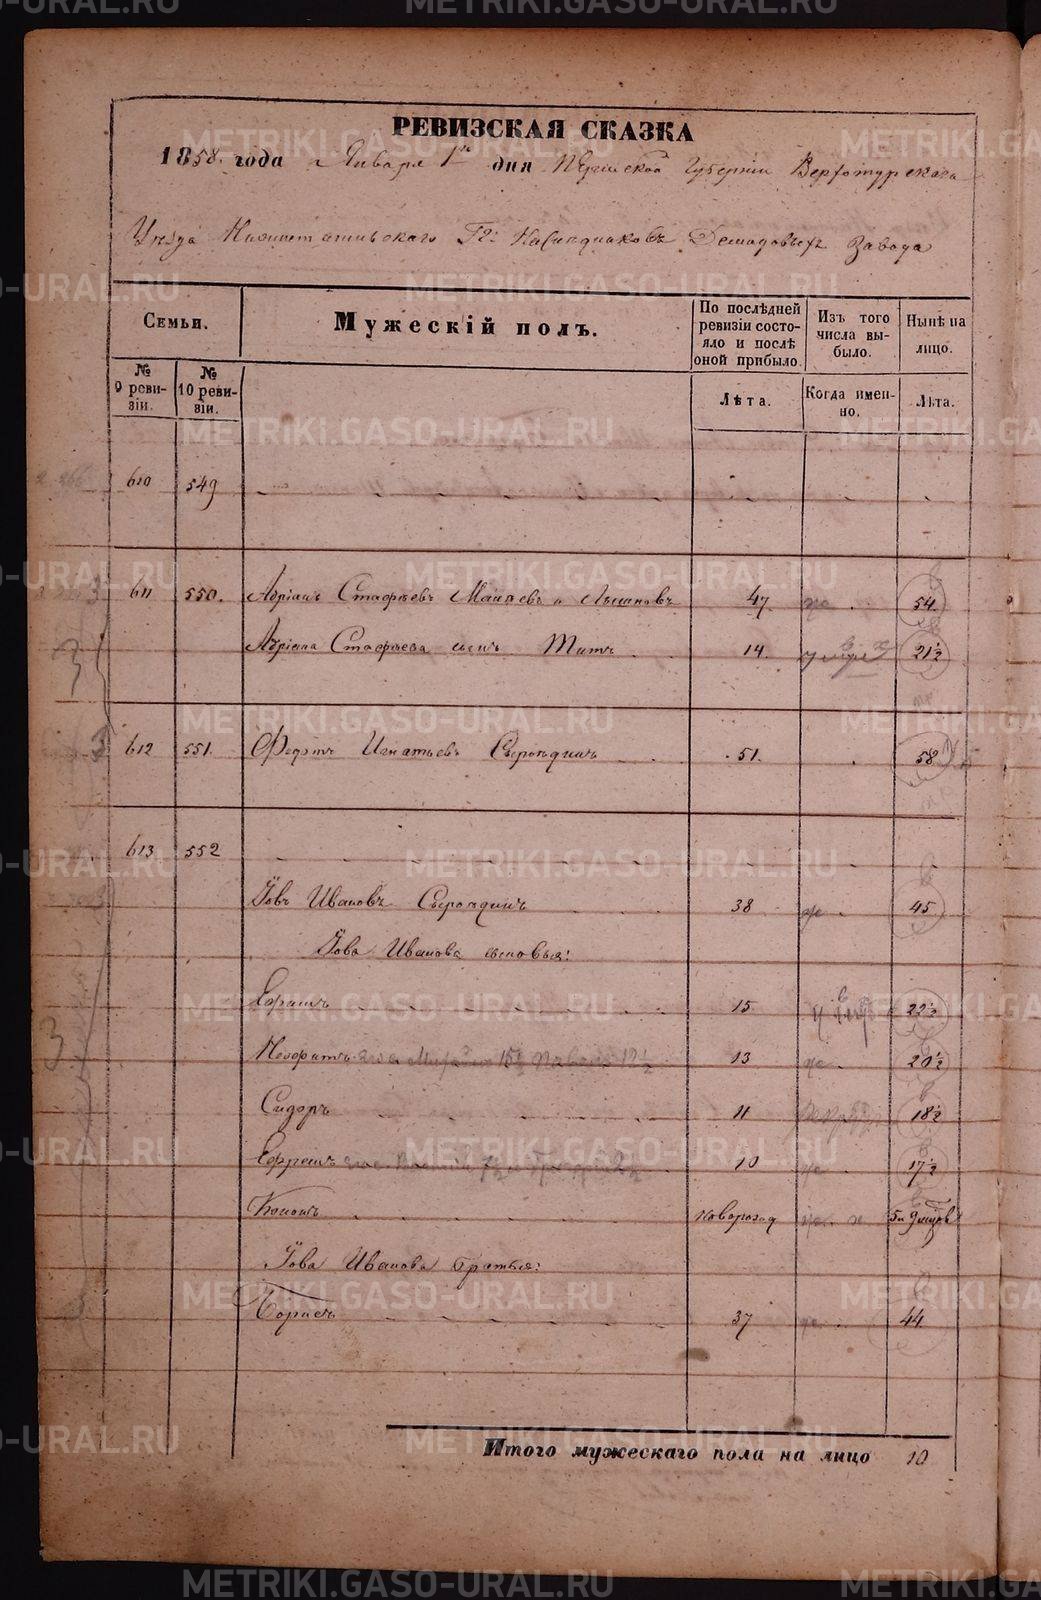 РЕВИЗСКАЯ СКАЗКА
1858 года Января 1го дня Пермской Губернии Верхотурскаго
Уѣзда Нижнетагильскаго Гг: Наслѣдниковъ Демидовыхъ Завода
Семьи.
Мужескій полъ.
По послѣдней ревизіи состояло и послѣ оной прибыло.
Изъ того числа выбыло.
Нынѣ на лицо.
№ 9 ревизіи.
№ 10 ревизіи.
Лѣта.
Когда именно.
Лѣта.
610 549
611 550. Адріанъ Стафѣевъ 47 54
Адріана Стафѣева сынъ Титъ 14 21½
612 551. Федотъ Игнатьевъ Сыропдинъ 51. 58
613 552
Іовъ Ивановъ Сыропдинъ 38 45
Іова Иванова сыновья:
Ефимъ 15 22½
Неофитъ 13 20½
Сидоръ 11 18½
Ефремъ 10 17½
Кононъ новорожд 5 и 9 мцовъ
Іова Иванова братья:
Борисъ 37 44
Итого мужескаго пола на лицо 10
METRIKI.GASO-URAL.RU